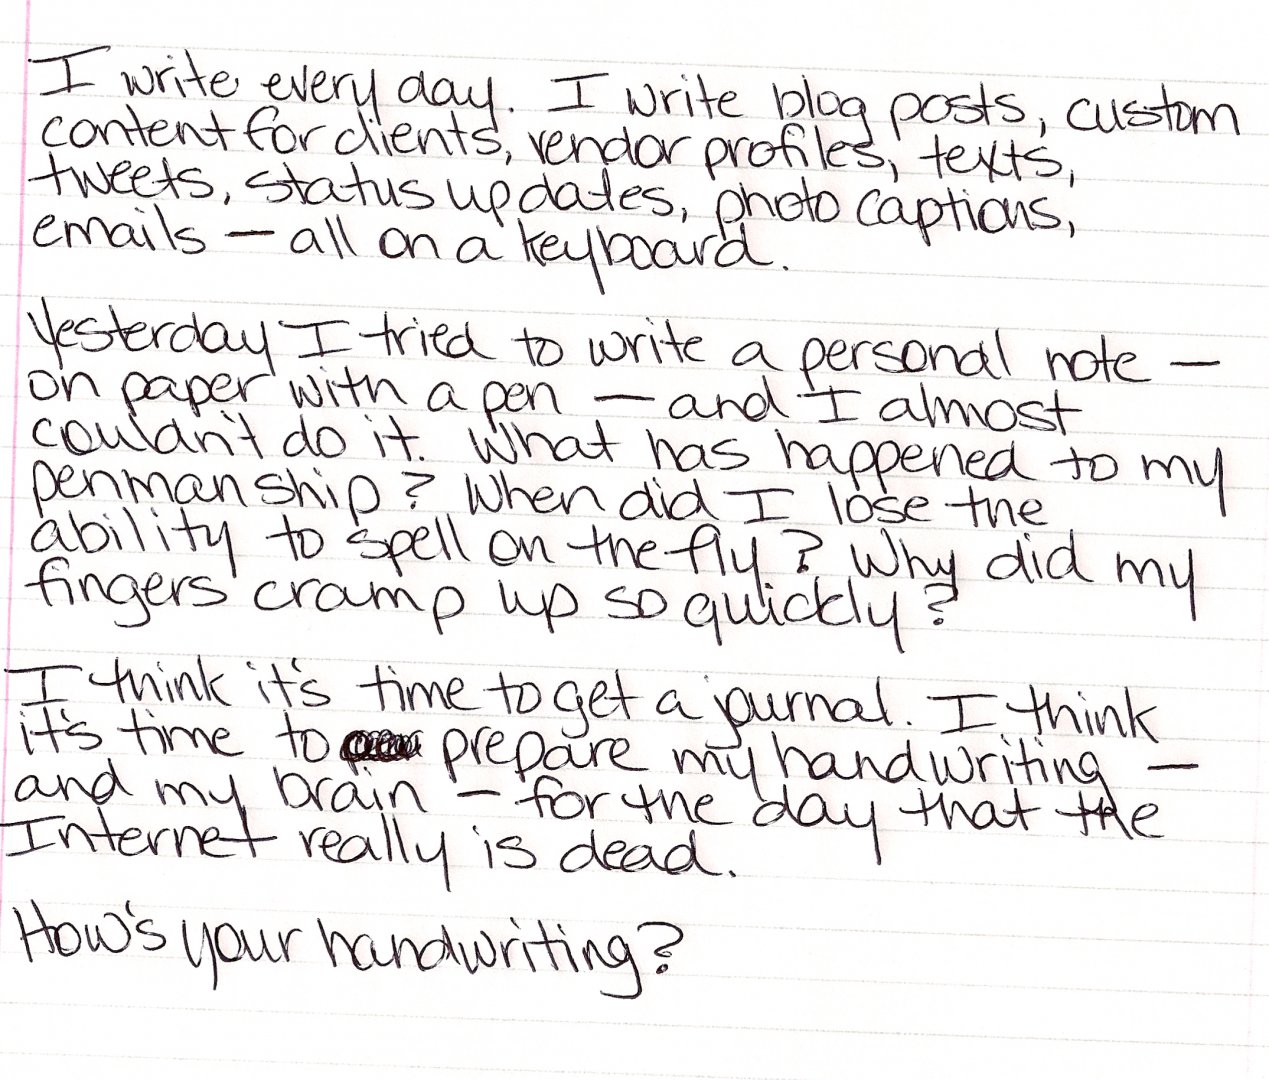 I write every day. I write blog posts, custom
content for clients, vendor profiles, texts,
tweets, status updates, photo captions,
emails — all on a keyboard.
Yesterday I tried to write a personal note —
on paper with a pen — and I almost
couldn't do it. What has happened to my
penmanship? When did I lose the
ability to spell on the fly? Why did my
fingers cramp up so quickly?
I think it's time to get a journal. I think
it's time to prepare my handwriting —
and my brain — for the day that the
Internet really is dead.
How's your handwriting?